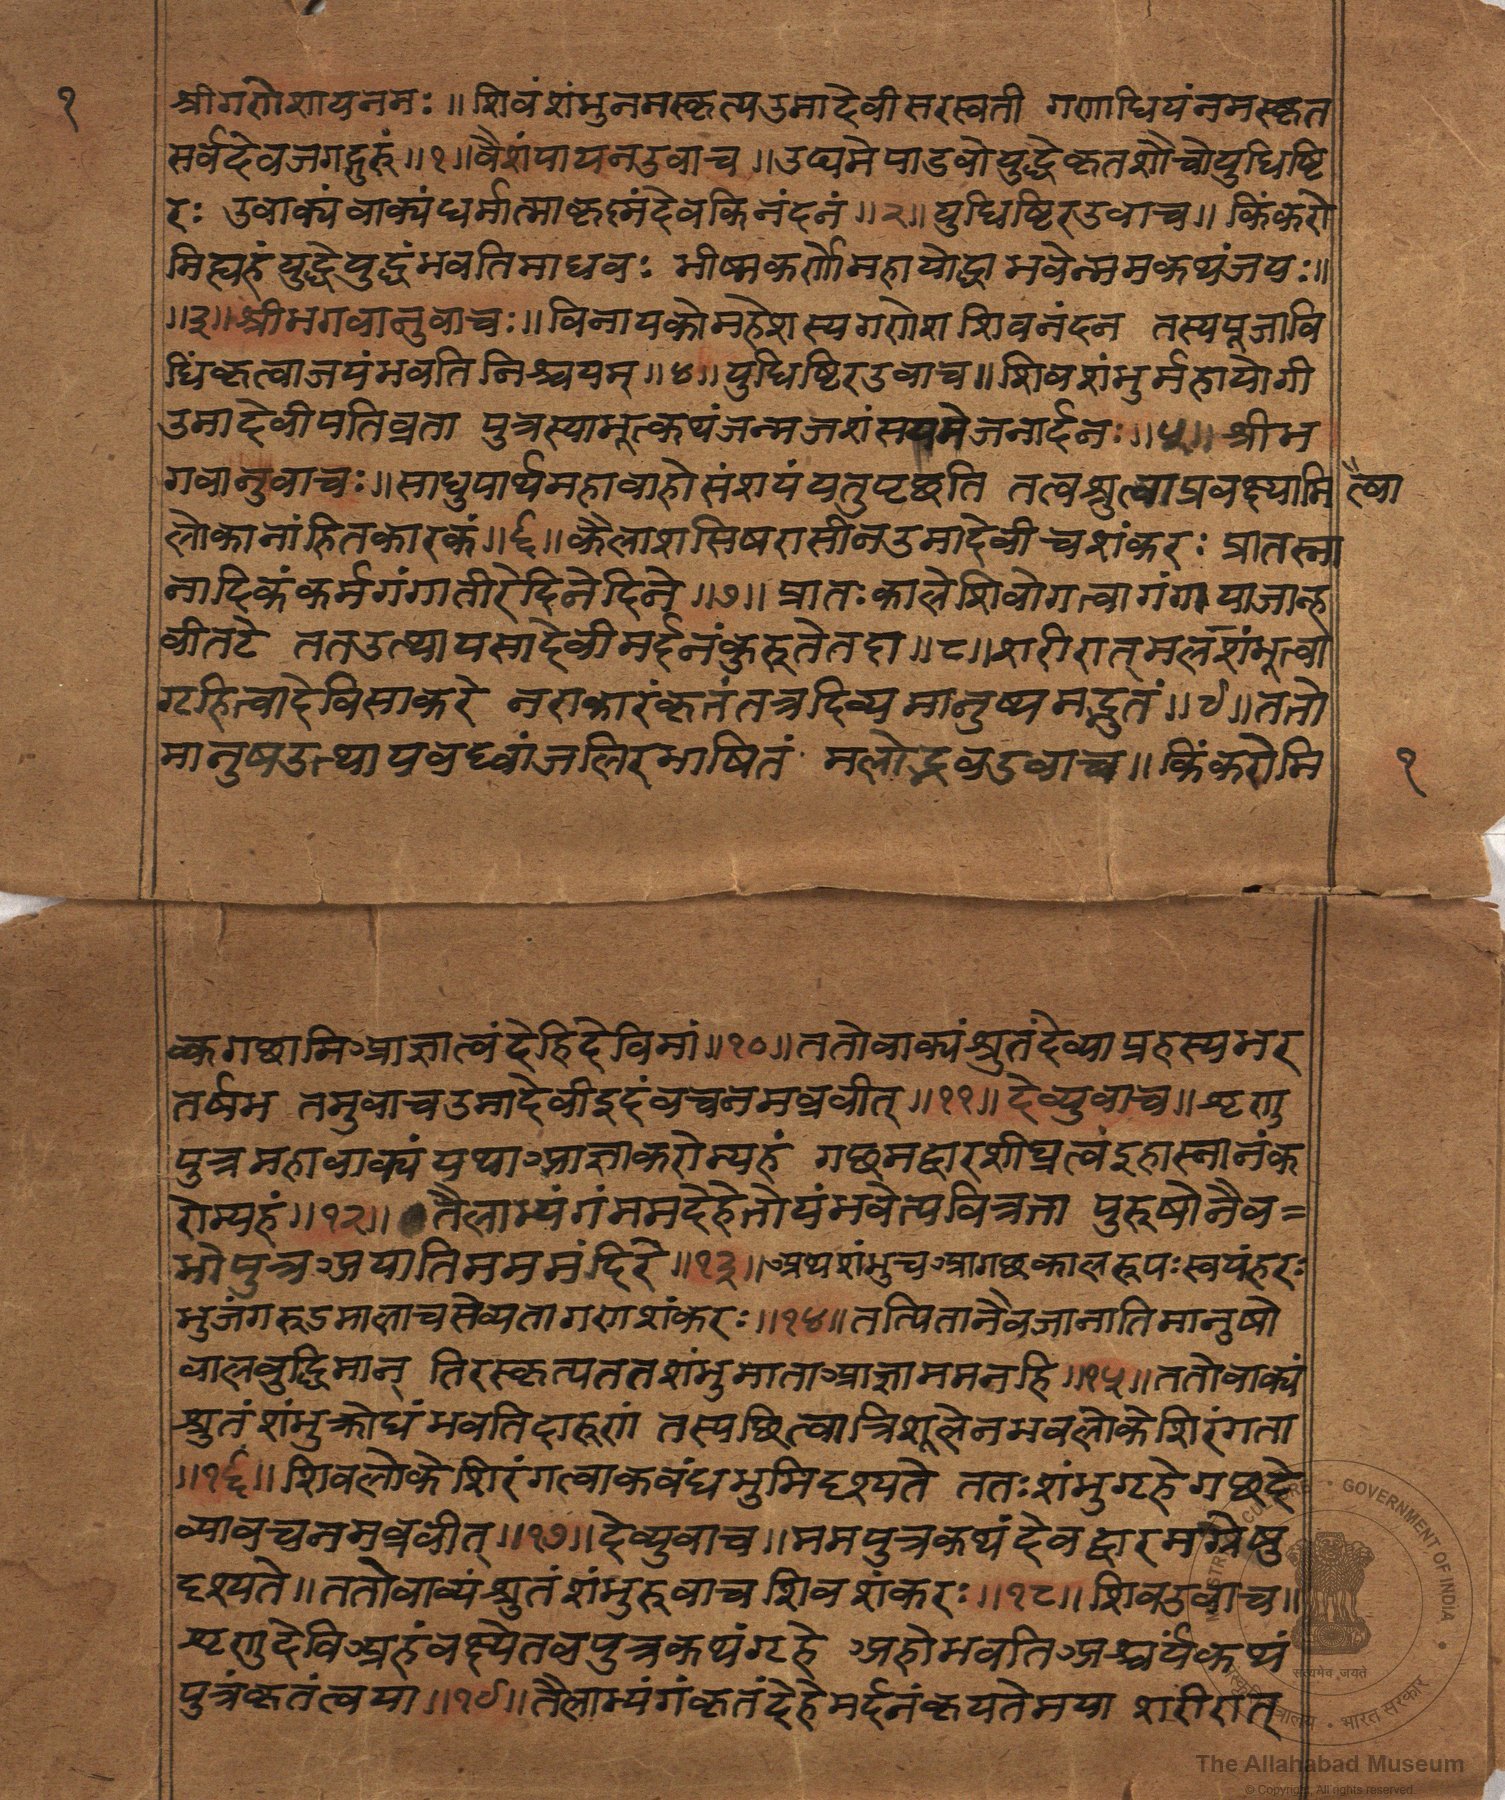 १
श्रीगणेशायनमः ॥ शिवंशंभुनमस्कृत्यउमादेवीसरस्वती गणाधिपंनमस्कृत
सर्वदेवजगद्गुरूं ॥१॥ वैशंपायनउवाच ॥ उप्यमेपाडवोयुद्धेकृतशौचोयुधिष्टि
रः उवाक्यंवाक्यंधर्मात्माकृष्नंदेवकिनंदनं ॥२॥ युधिष्टिरउवाच ॥ किंकरो
मिह्यहंयुद्धेयुद्धंभवतिमाधवः भीष्मकर्णोमहायोद्धाभवेन्ममकथंजयः॥
॥३॥ श्रीभगवानुवाचः॥ विनायकोमहेशस्यगणेशशिवनंदन तस्यपूजावि
धिंकृत्वाजयंभवतिनिश्चयम् ॥४॥ युधिष्टिरउवाच ॥ शिवशंभुर्महायोगी
उमादेवीपतिव्रता पुत्रस्याभूत्कथंजन्मजशंसयमेजनार्दनः ॥५॥ श्रीभ
गवानुवाचः॥ साधुपार्थमहावाहोसंशयंयतुपृछति तत्वश्रुत्वाप्रवक्ष्यामित्रै
लोकानांहितकारकं ॥६॥ कैलाशसिषरासीनउमादेवीचशंकरः प्रातस्ना
नादिकंकर्मगंगातीरेदिनेदिने ॥७॥ प्रातःकालेशिवोगत्वागंगायाजान्ह
वीतटे ततउत्थायसादेवीमर्दनंकुरूतेतदा ॥८॥ शरीरात्मलशंभूत्वा
गृहित्वादेविसाकरे नराकारंकृतंतत्रदिव्यमानुष्यमद्भुतं ॥९॥ ततो
मानुषउत्थायवध्वांजलिरभाषितं मलोद्भवउवाच ॥ किंकरोमि
१
क्वगछामिआज्ञात्वंदेहिदेविमां ॥१०॥ ततोवाक्यंश्रुतंदेव्याप्रहस्यभर
तर्षभ तमुवाचउमादेवीइदंवचनमव्रवीत् ॥११॥ देव्युवाच ॥ शृणु
पुत्रमहावाक्यंयथाआज्ञाकरोम्यहं गछमद्वारशीघ्रत्वंइहास्नानंक
रोम्यहं ॥१२॥ तैलाभ्यंगंममदेहेतोयंभवेत्पवित्रता पुरूषोनैव=
भोपुत्रअयातिमममंदिरे ॥१३॥ अथशंभुचआगछकालरूपःस्वयंहरः
भुजंगरूडमालाचसेव्यतागणशंकरः ॥१४॥ तत्पितानैवजानातिमानुषो
वालवुद्धिमान् तिरस्कृत्यततशंभुमाताआज्ञाममनहि ॥१५॥ ततोवाक्यं
श्रुतंशंभुक्रोधंभवतिदारूणं तस्यछित्वात्रिशूलेनभवलोकेशिरंगता
॥१६॥ शिवलोकेशिरंगत्वाकवंधभुमिदृश्यते ततःशंभुगृहेगछदे
व्यावचनमव्रवीत् ॥१७॥ देव्युवाच ॥ ममपुत्रकथंदेवद्वारमग्रेषु
दृश्यते ॥ ततोवाक्यंश्रुतंशंभुरूवाचशिवशंकरः ॥१८॥ शिवउवाच ॥
शृणुदेविअहंवक्ष्येतवपुत्रकथंगृहे अहोभवतिअश्चर्यंकथं
पुत्रंकृतंत्वया ॥१९॥ तैलाभ्यंगंकृतंदेहेमर्दनंकृयतेमया शरीरात्
GOVERNMENT OF INDIA
सत्यमेव जयते
भारत सरकार
The Allahabad Museum
© Copyright, All rights reserved.